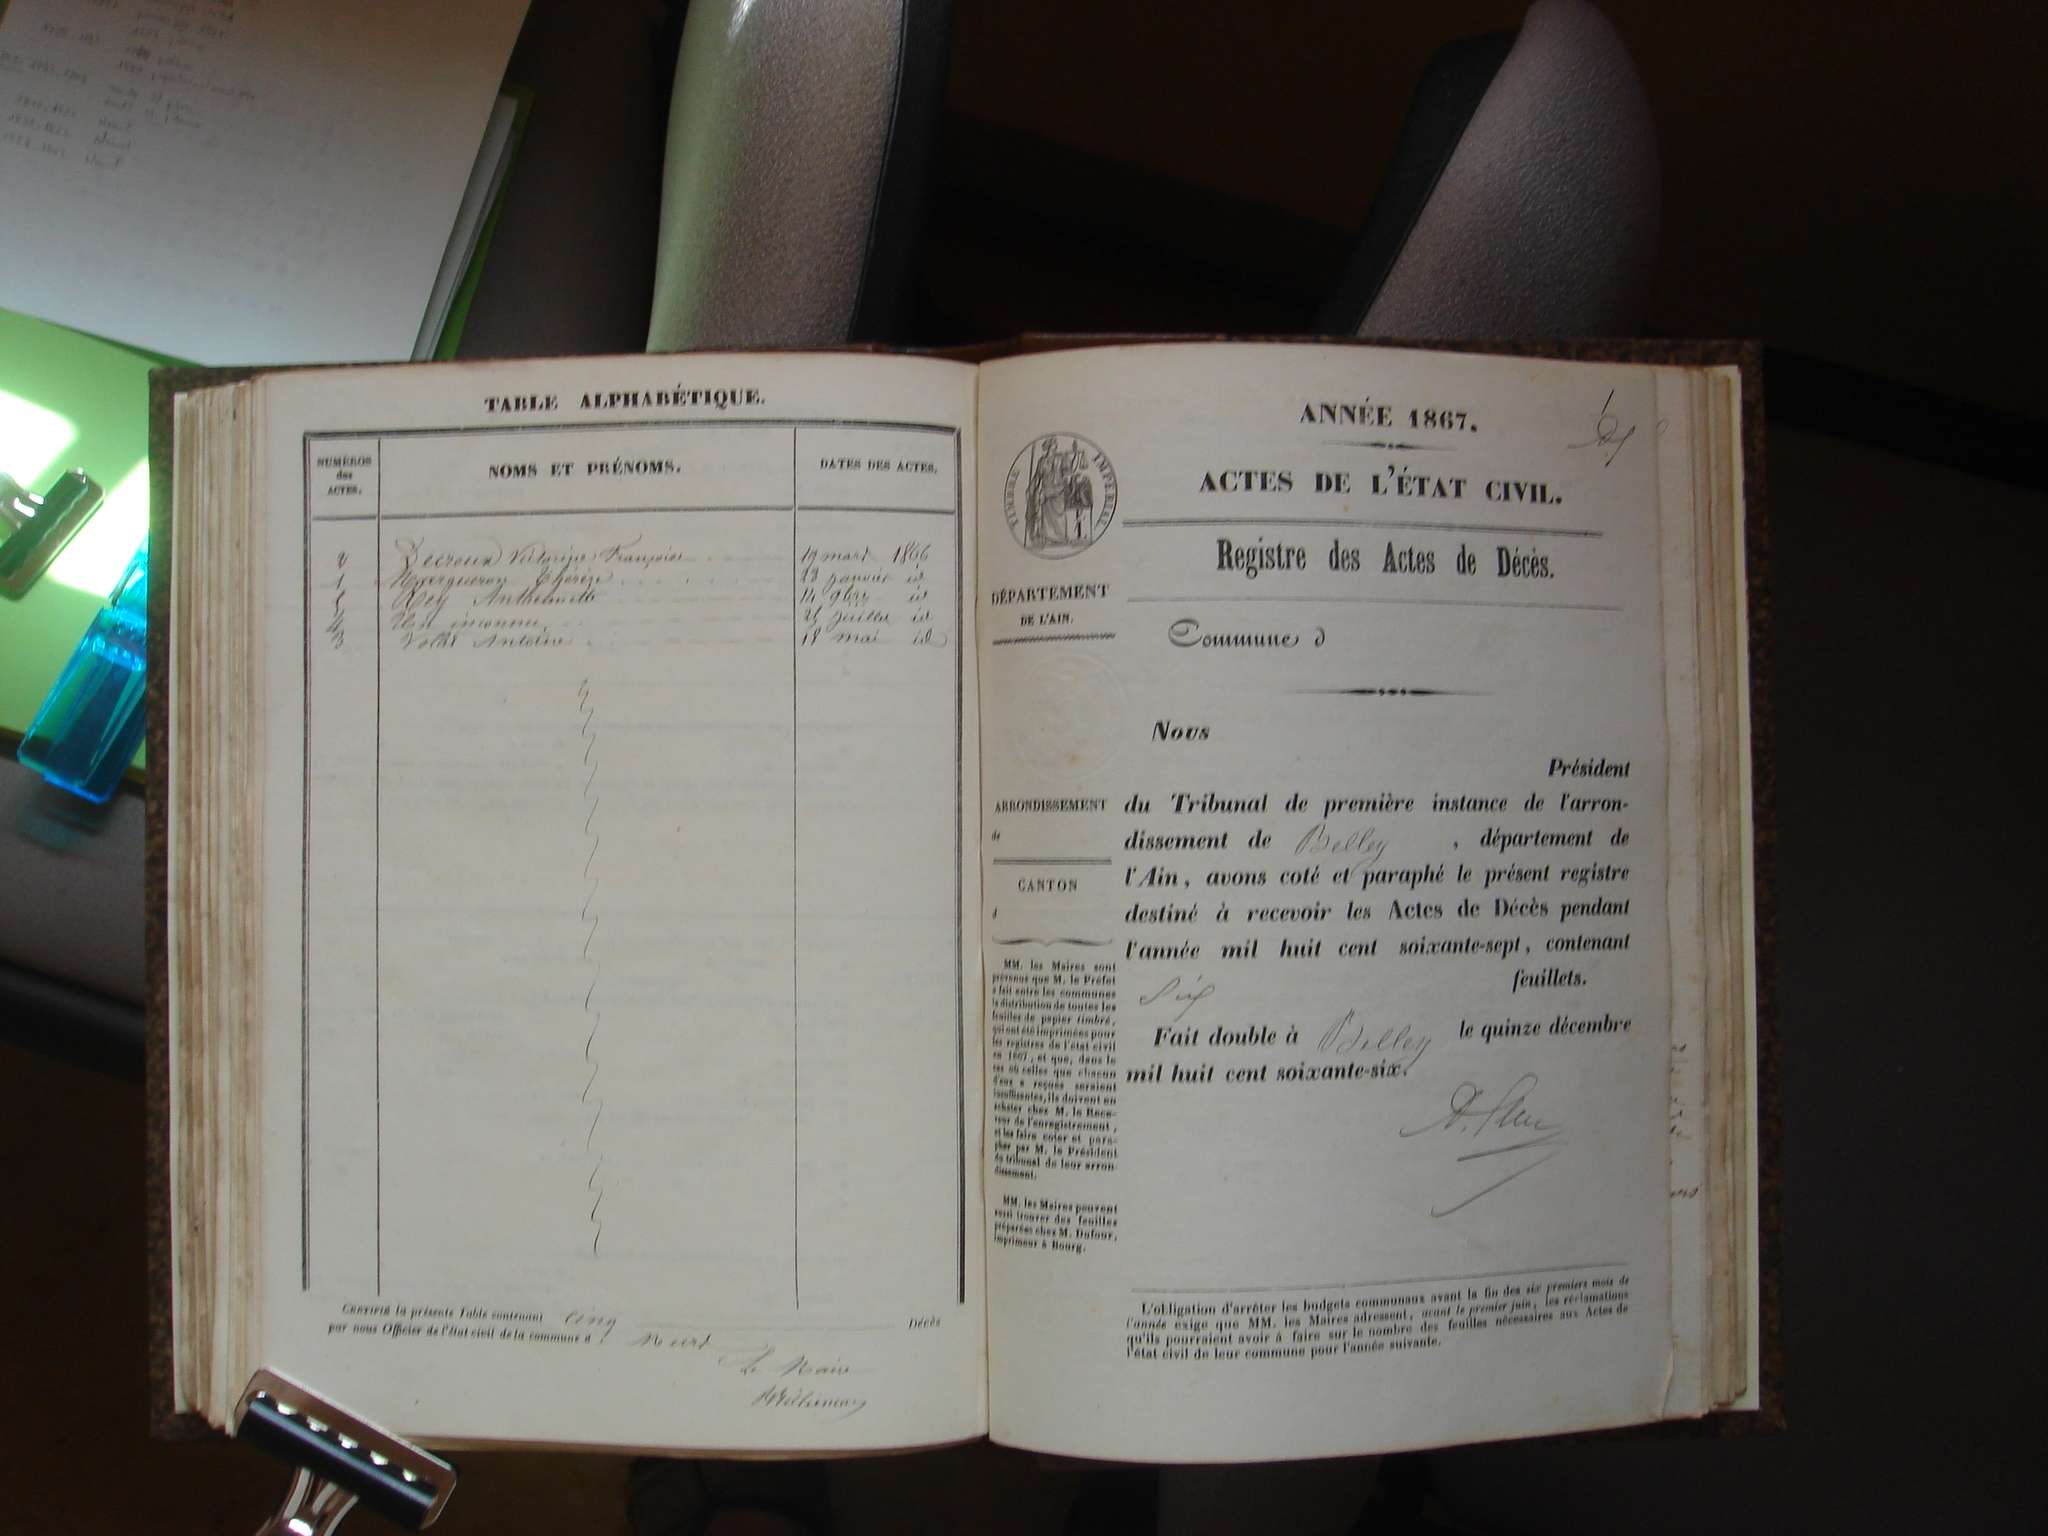 TABLE ALPHABÉTIQUE.
NUMÉROS
des
ACTES.
NOMS ET PRÉNOMS.
DATES DES ACTES.
2 Decroux Victorine Françoise 19 mars 1866
1 Thérèse 23 janvier id
Rey Anthelmette 14 9bre id
Un inconnu 25 juillet id
3 Antoine 18 mai id
CERTIFIÉ la présente Table contenant cinq Décès
par nous Officier de l'état civil de la commune d
Le Maire
ANNÉE 1867.
1
ACTES DE L'ÉTAT CIVIL.
TIMBRE IMPÉRIAL
Registre des Actes de Décès.
DÉPARTEMENT
DE L'AIN.
Commune d
Nous
Président
du Tribunal de première instance de l'arron-
dissement de Belley, département de
l'Ain, avons coté et paraphé le présent registre
destiné à recevoir les Actes de Décès pendant
l'année mil huit cent soixante-sept, contenant
six feuillets.
Fait double à Belley le quinze décembre
mil huit cent soixante-six.
ARRONDISSEMENT
de
CANTON
d
MM. les Maires sont
prévenus que M. le Préfet
a fait entre les communes
la distribution de toutes les
feuilles de papier timbré,
qui ont été imprimées pour
les registres de l'état civil
en 1867, et que, dans le
cas où celles que chacun
d'eux a reçues seraient
insuffisantes, ils doivent en
acheter chez M. le Rece-
veur de l'enregistrement,
et les faire coter et para-
pher par M. le Président
du tribunal de leur arron-
dissement.
MM. les Maires peuvent
aussi trouver des feuilles
préparées chez M. Dufour,
imprimeur à Bourg.
L'obligation d'arrêter les budgets communaux avant la fin des six premiers mois de
l'année exige que MM. les Maires adressent, avant le premier juin, les réclamations
qu'ils pourraient avoir à faire sur le nombre des feuilles nécessaires aux Actes de
l'état civil de leur commune pour l'année suivante.